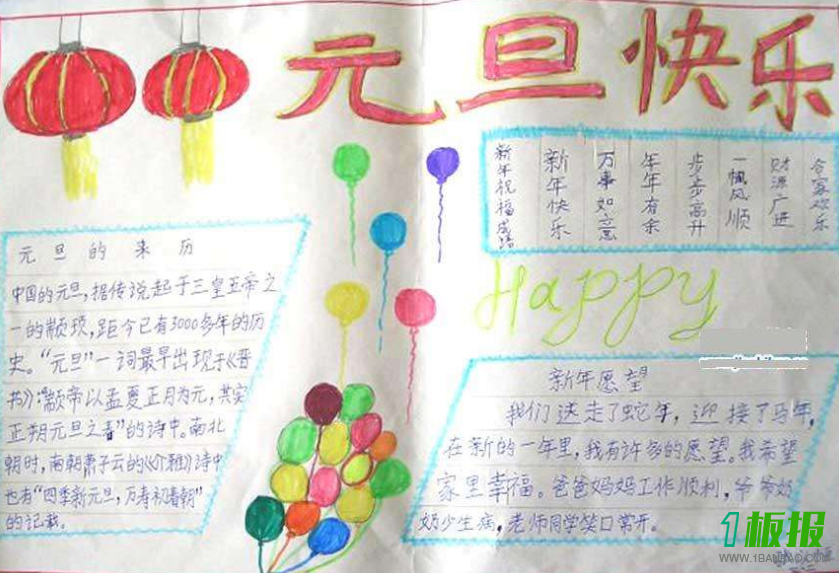 元旦快乐
新年祝福成语
新年快乐
万事如意
年年有余
步步高升
一帆风顺
财源广进
合家欢乐
元旦的来历
中国的元旦，据传说起于三皇五帝之
一的颛顼，距今已有3000多年的历
史。“元旦”一词最早出现于《晋
书》：“颛帝以孟夏正月为元，其实
正朔元旦之春”的诗中。南北
朝时，南朝萧子云的《介雅》诗中
也有“四季新元旦，万寿初春朝”
的记载。
Happy
新年愿望
我们送走了蛇年，迎接了马年，
在新的一年里，我有许多的愿望。我希望
家里幸福。爸爸妈妈工作顺利，爷爷奶
奶少生病，老师同学笑口常开。
1板报
WWW.1BANBAO.COM